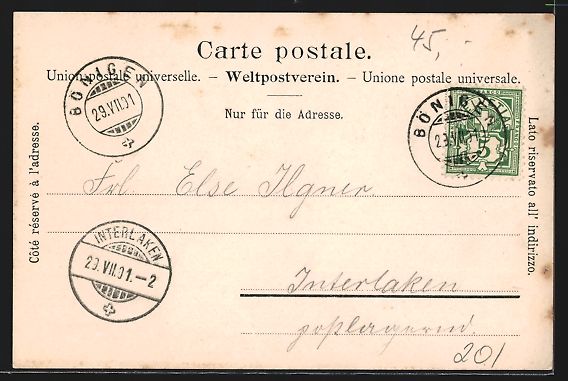 45,-
Carte postale.
Union postale universelle. – Weltpostverein. – Unione postale universale.
Nur für die Adresse.
BÖNIGEN
29.VII.01
BÖNIGEN
29.VII.01
FRANCO
5
Côté réservé à l'adresse.
Lato riservato all' indirizzo.
Frl. Else Ilgner
INTERLAKEN
29.VII.01.–2
Interlaken
postlagernd
201